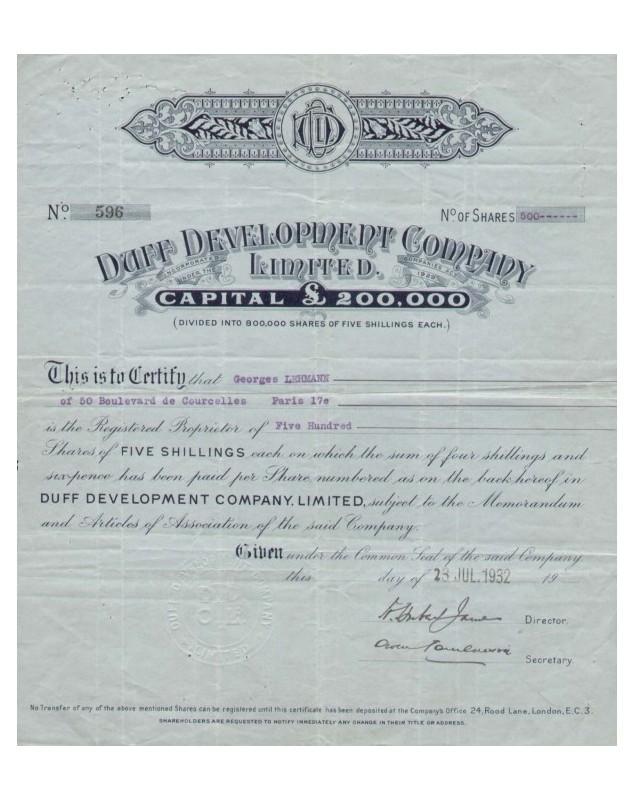 No. 596
No OF SHARES 500------
DUFF DEVELOPMENT COMPANY
LIMITED.
INCORPORATED UNDER THE COMPANIES ACT 1929
CAPITAL £ 200,000
(DIVIDED INTO 800,000 SHARES OF FIVE SHILLINGS EACH.)
This is to Certify that Georges LEHMANN
of 50 Boulevard de Courcelles Paris 17e
is the Registered Proprietor of Five Hundred
Shares of FIVE SHILLINGS each on which the sum of four shillings and
sixpence has been paid per Share numbered as on the back hereof in
DUFF DEVELOPMENT COMPANY, LIMITED, subject to the Memorandum
and Articles of Association of the said Company.
Given under the Common Seal of the said Company
this day of 23 JUL.1932 19
Director.
Secretary.
No Transfer of any of the above mentioned Shares can be registered until this certificate has been deposited at the Company's Office 24, Rood Lane, London, E.C.3.
SHAREHOLDERS ARE REQUESTED TO NOTIFY IMMEDIATELY ANY CHANGE IN THEIR TITLE OR ADDRESS.